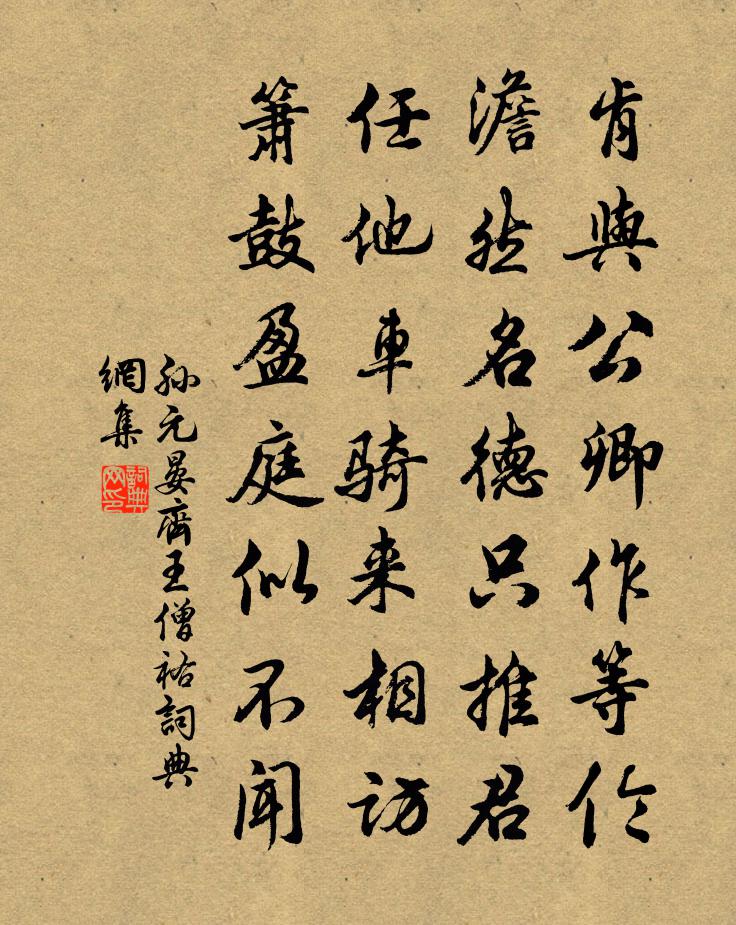 肯與公卿作等伦
澹然名德只推君
任他車騎来相訪
簫鼓盈庭似不闻
孙元晏齊王僧祐詞典
網集
詞典
网印